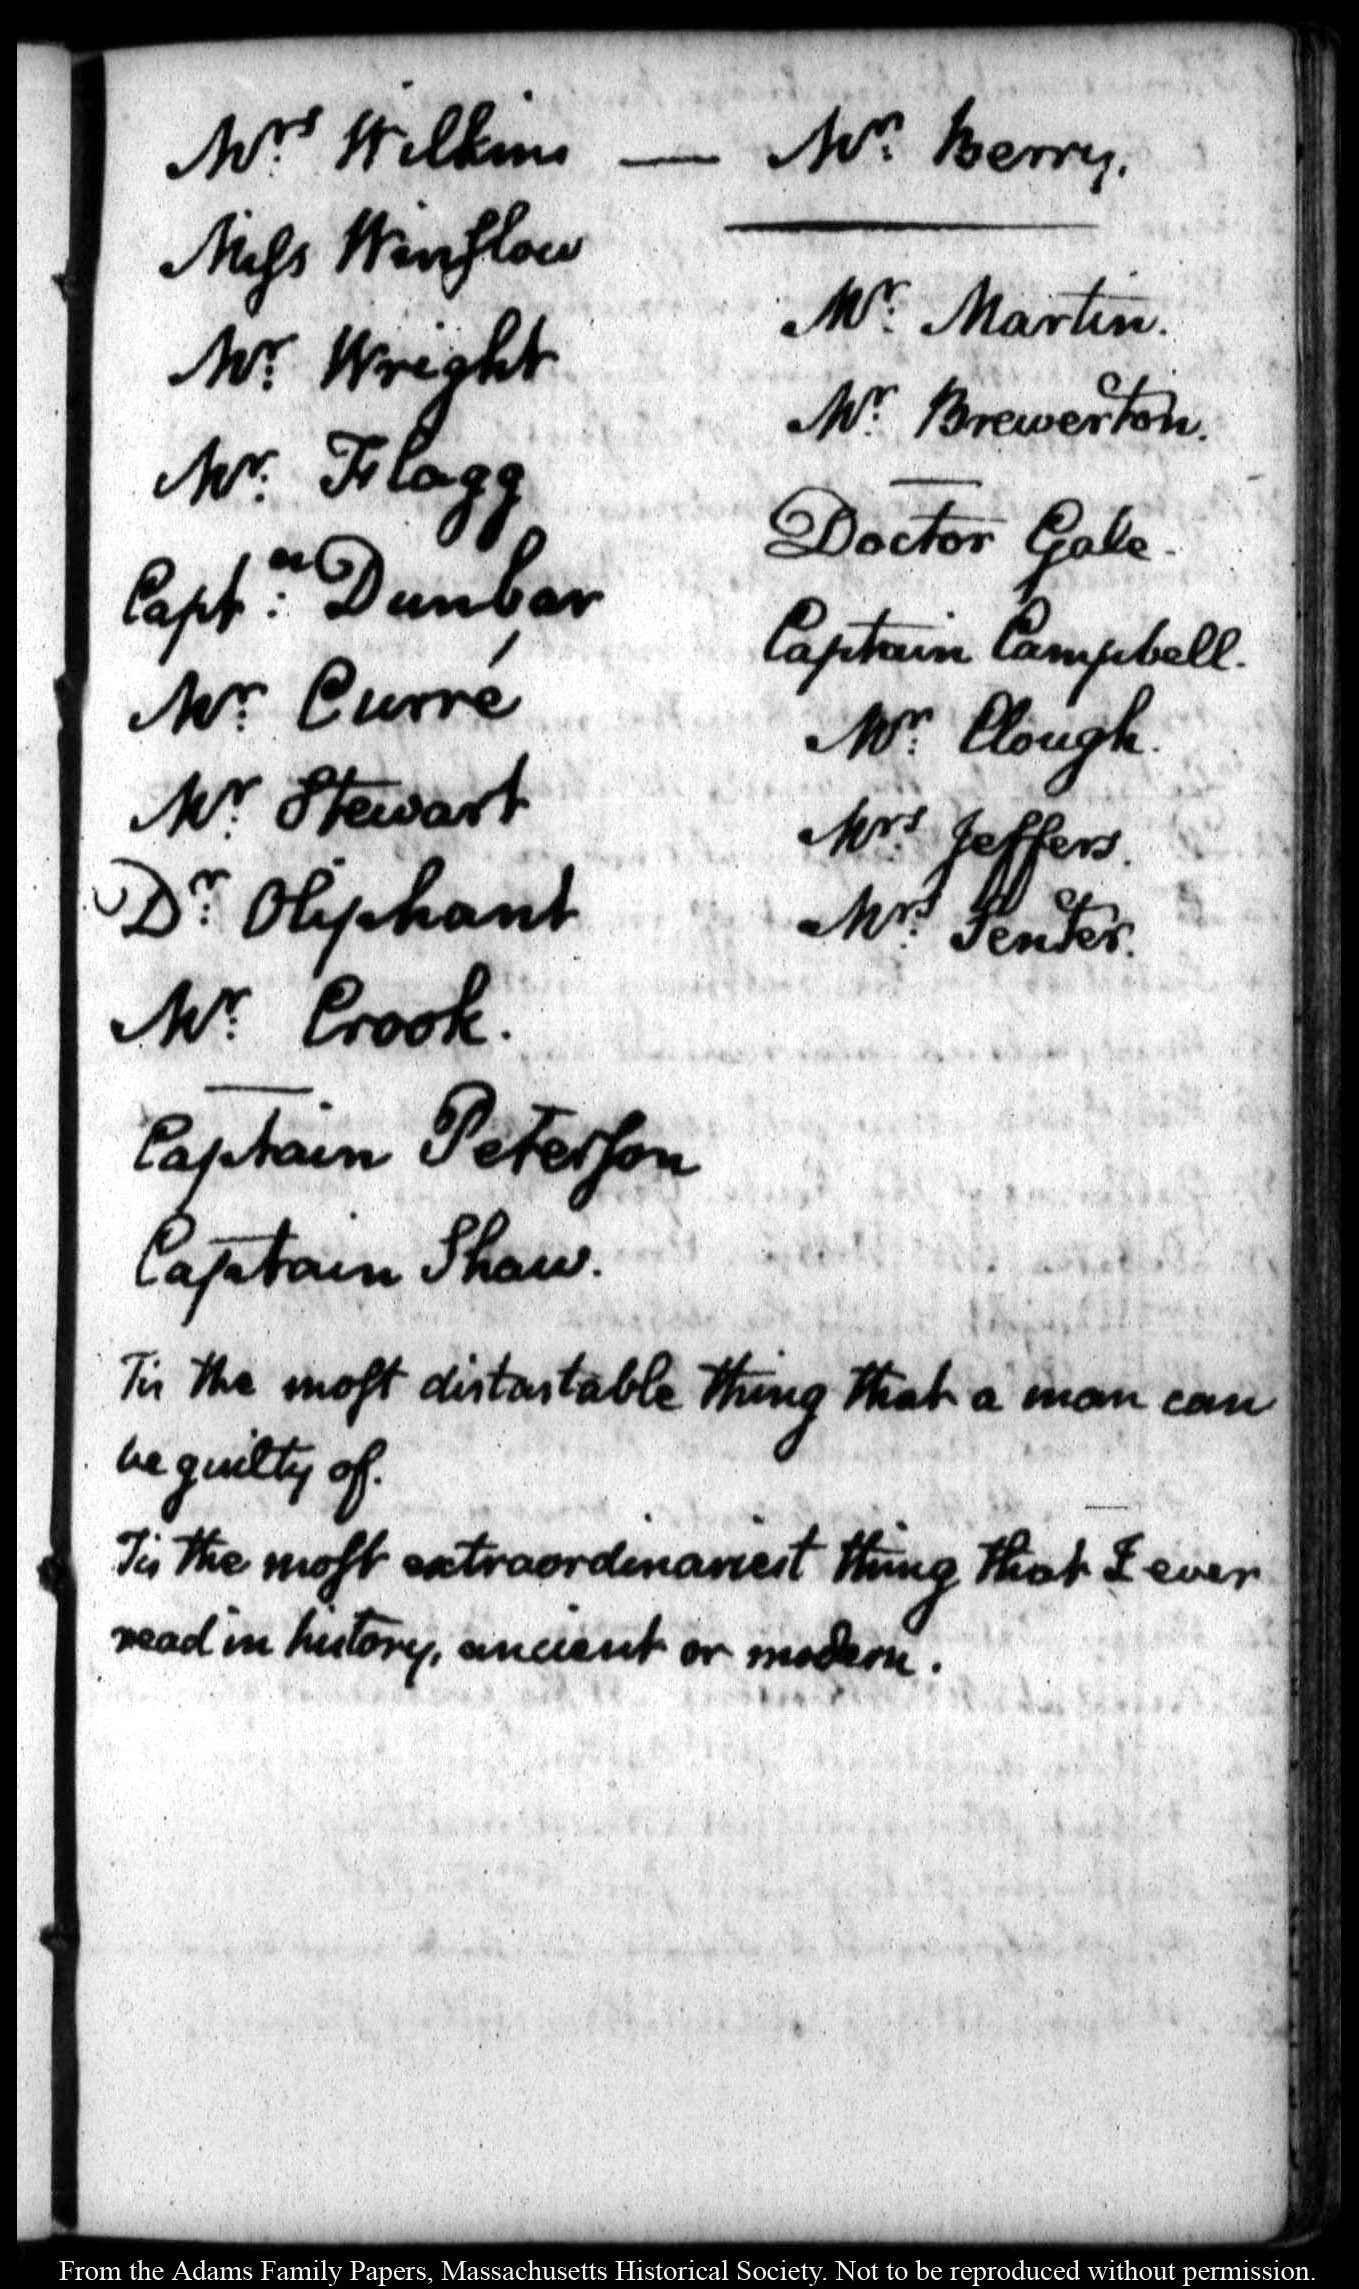 Mrs. Wilkins — Mr. Berry.
Miss Winslow
Mr. Wright
Mr. Flagg
Captn. Dunbar
Mr. Curré
Mr. Stewart
Dr. Oliphant
Mr. Crook.
Captain Peterson
Captain Shaw.
Mr. Martin.
Mr. Brewerton.
Doctor Gale.
Captain Campbell.
Mr. Clough.
Mrs. Jeffers.
Mrs. Fenter.
Tis the most distastable thing that a man can
be guilty of.
Tis the most extraordinariest thing that I ever
read in history, ancient or modern.
From the Adams Family Papers, Massachusetts Historical Society. Not to be reproduced without permission.